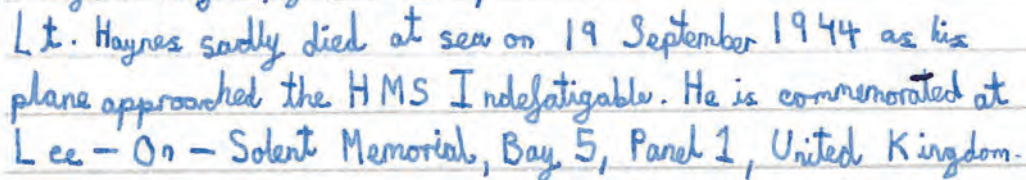 Lt. Haynes sadly died at sea on 19 September 1944 as his
plane approached the HMS Indefatigable. He is commemorated at
Lee - On - Solent Memorial, Bay 5, Panel 1, United Kingdom.